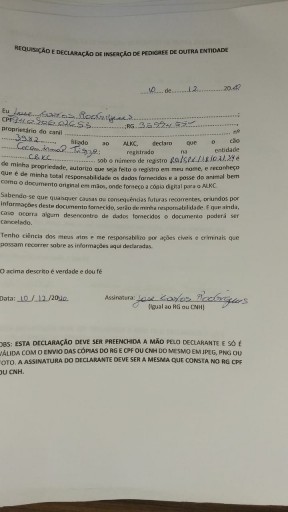 REQUISIÇÃO E DECLARAÇÃO DE INSERÇÃO DE PEDIGREE DE OUTRA ENTIDADE
10 de 12 20
Eu Jose Carlos Rodrigues
CPF ;RG
proprietário do canil nº
filiado ao ALKC, declaro que o cão
registrado na entidade
CBKC sob o número de registro
de minha propriedade, autorizo que seja feito o registro em meu nome, e reconheço
que é de minha total responsabilidade os dados fornecidos e a posse do animal bem
como o documento original em mãos, onde forneço a cópia digital para o ALKC.
Sabendo-se que quaisquer causas ou consequências futuras recorrentes, oriundos por
informações deste documento fornecido, serão de minha responsabilidade. E que ainda,
caso ocorra algum desencontro de dados fornecidos o documento poderá ser
cancelado.
Tenho ciência dos meus atos e me responsabilizo por ações civeis e criminais que
possam recorrer as informações aqui declaradas.
O acima descrito é verdade e dou fé
Data: 10/12/2020 Assinatura: Jose Carlos Rodrigues
(Igual ao RG ou CNH)
OBS: ESTA DECLARAÇÃO DEVE SER PREENCHIDA A MÃO PELO DECLARANTE E SÓ É
VÁLIDA COM O ENVIO DAS CÓPIAS DO RG E CPF OU CNH DO MESMO EM JPEG, PNG OU
FOTO. A ASSINATURA DO DECLARANTE DEVE SER A MESMA QUE CONSTA NO RG CPF
OU CNH.